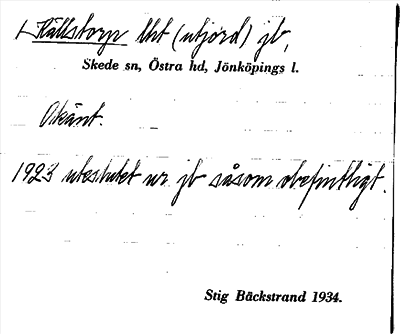 Källstorp lht (utjord) jb,
Skede sn, Östra hd, Jönköpings l.
Okänt.
1923 uteslutet ur jb såsom obefintligt.
Stig Bäckstrand 1934.